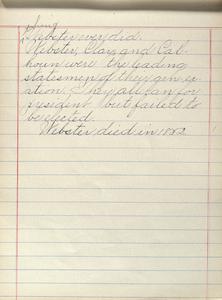 thing
Webster ever did.
Webster, Clay and Cal-
houn were the leading
statesmen of their gen er-
ation. They all ran for
president but failed to
be elected.
Webster died in 1852